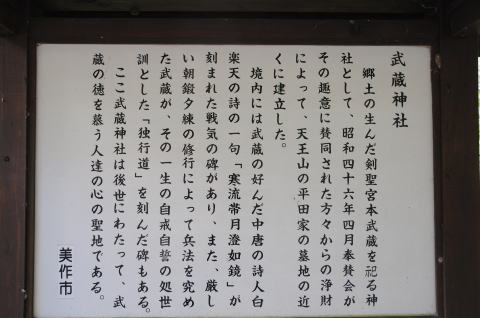 武蔵神社
郷土の生んだ剣聖宮本武蔵を祀る神
社として、昭和四十六年四月奉賛会が
その趣意に賛同された方々からの浄財
によって、天王山の平田家の墓地の近
くに建立した。
境内には武蔵の好んだ中唐の詩人白
楽天の詩の一句「寒流帯月澄如鏡」が
刻まれた戦気の碑があり、また、厳し
い朝鍛夕練の修行によって兵法を究め
た武蔵が、その一生の自戒自誓の処世
訓とした「独行道」を刻んだ碑もある。
ここ武蔵神社は後世にわたって、武
蔵の徳を慕う人達の心の聖地である。
美作市